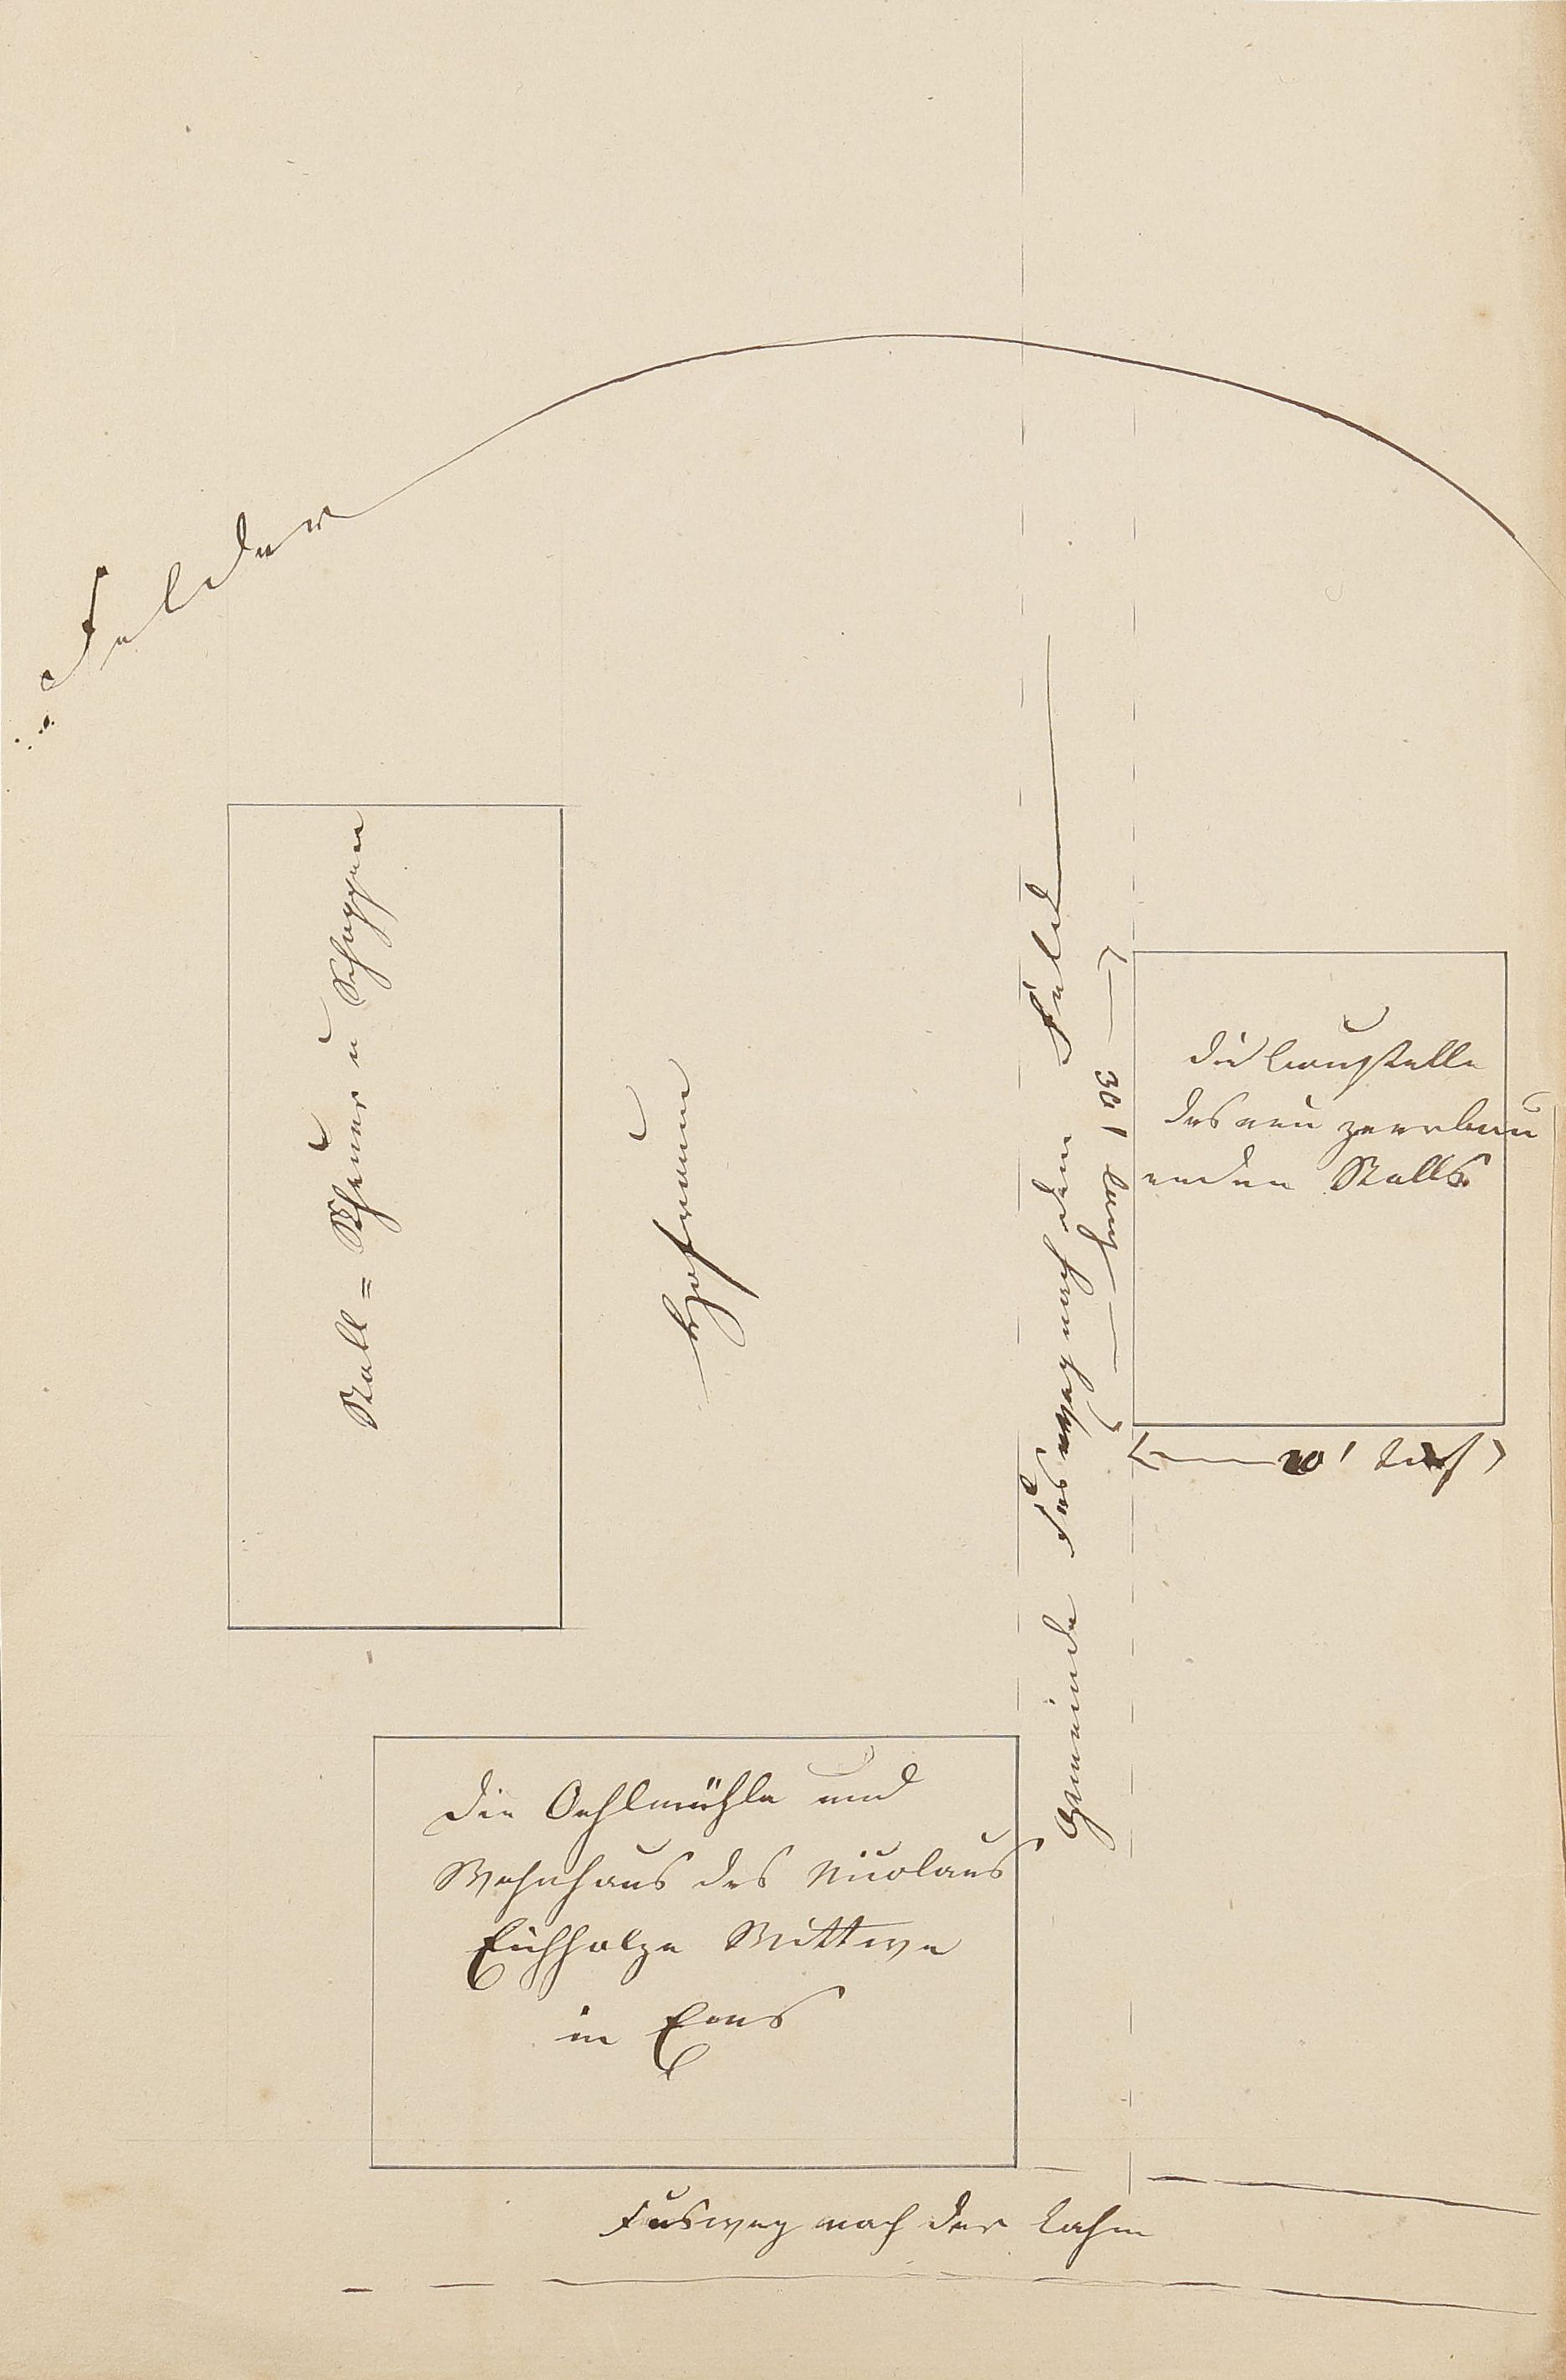 Felder
Stall = Scheuer u Schoppen
Hofraum
Gemeinde Fusweg nach dem Felde
30' lang
die Baustelle
des neu zu erbau
enden Stalls
20' tief
Die Oehlmühle und
Wohnhaus des Nicolaus
Eichholze Wittwe
in Ems
Fusweg nach der Lahn